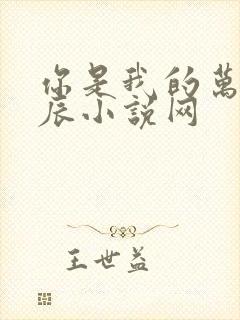 你是我的萬
辰小說网
王世益